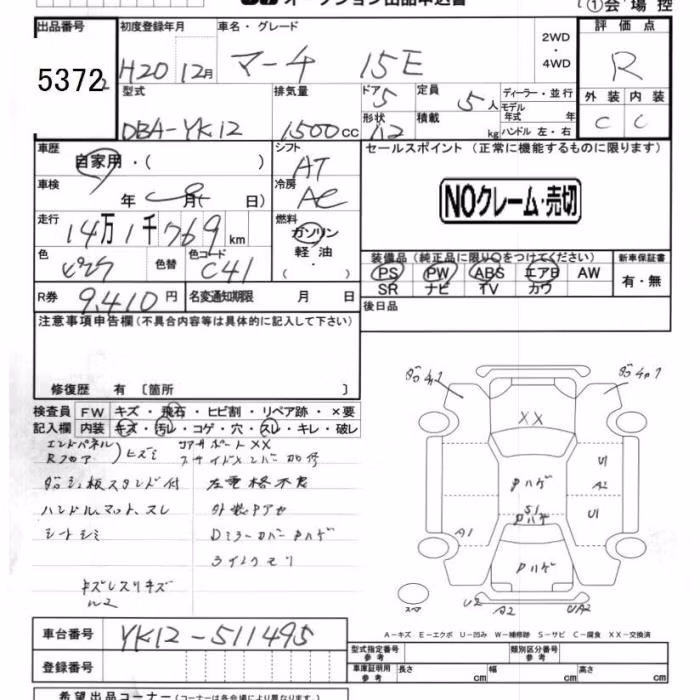 オークション出品申込書
①会場控
出品番号 初度登録年月 車名・グレード 2WD・4WD 評価点
5372 H20 12月 マーチ 15E R
型式 排気量 ドア 5 定員 5人 ディーラー・並行 外装 内装
DBA-YK12 1500cc 形状 積載 kg モデル年式 年式 ハンドル 左・右 C C
車歴 シフト セールスポイント (正常に機能するものに限ります)
自家用・( ) AT
NOクレーム・売切
車検 年 月( 日) 冷房 AC
走行 14万1千769km 燃料 ガソリン
軽油
( ・ )
色 色替 色コード C41
装備品(純正品に限り○をつけてください) 新車保証書
PS PW ABS エアB AW 有・無
SR ナビ TV カワ
R券 9,410円 名変通知期限 月 日
後日品
注意事項申告欄(不具合内容等は具体的に記入して下さい)
修復歴 有 〔箇所 〕
検査員 FW キズ・飛石・ヒビ割・リペア跡・×要
記入欄 内装 キズ・汚レ・コゲ・穴・スレ・キレ・破レ
エンドパネル
Rフロア
ヒズミ
コアサポートXX
サイドメンバー
ダッシュ板スタンド付
ハンドル、マット、スレ
シートシミ
XX
Pハゲ
U1
A2
S1
Pハゲ
U1
A1
Pハゲ
スペア
U2
A2
UA2
A-キズ E-エクボ U-凹み W-補修跡 S-サビ C-腐食 XX-交換済
車台番号 YK12-511495
登録番号
型式指定番号 参考 類別区分番号 参考
車庫証明用 参考 長さ cm 幅 cm 高さ cm
希望出品コーナー(コーナーは各会場により異なります。)